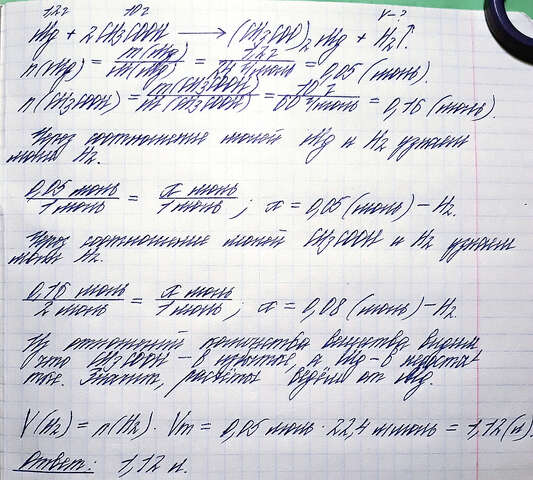 1,2г 10г V-?
Mg + 2CH3COOH ⟶ (CH3COO)2Mg + H2↑.
n(Mg) = m(Mg)/M(Mg) = 1,2 г/24 г/моль = 0,05 (моль).
n(CH3COOH) = m(CH3COOH)/M(CH3COOH) = 10 г/60 г/моль = 0,16 (моль).
Через соотношение молей Mg и H2 узнаем
моли H2.
0,05 моль/1 моль = x моль/1 моль; x = 0,05 (моль) – H2.
Через соотношение молей CH3COOH и H2 узнаем
моли H2.
0,16 моль/2 моль = x моль/1 моль; x = 0,08 (моль) – H2.
Из отношений количества вещества видим
что CH3COOH – в избытке, а Mg – в недоста
тке. Значит, расчёты ведём от Mg.
V(H2) = n(H2) · Vm = 0,05 моль · 22,4 л/моль = 1,12 (л).
Ответ: 1,12 л.